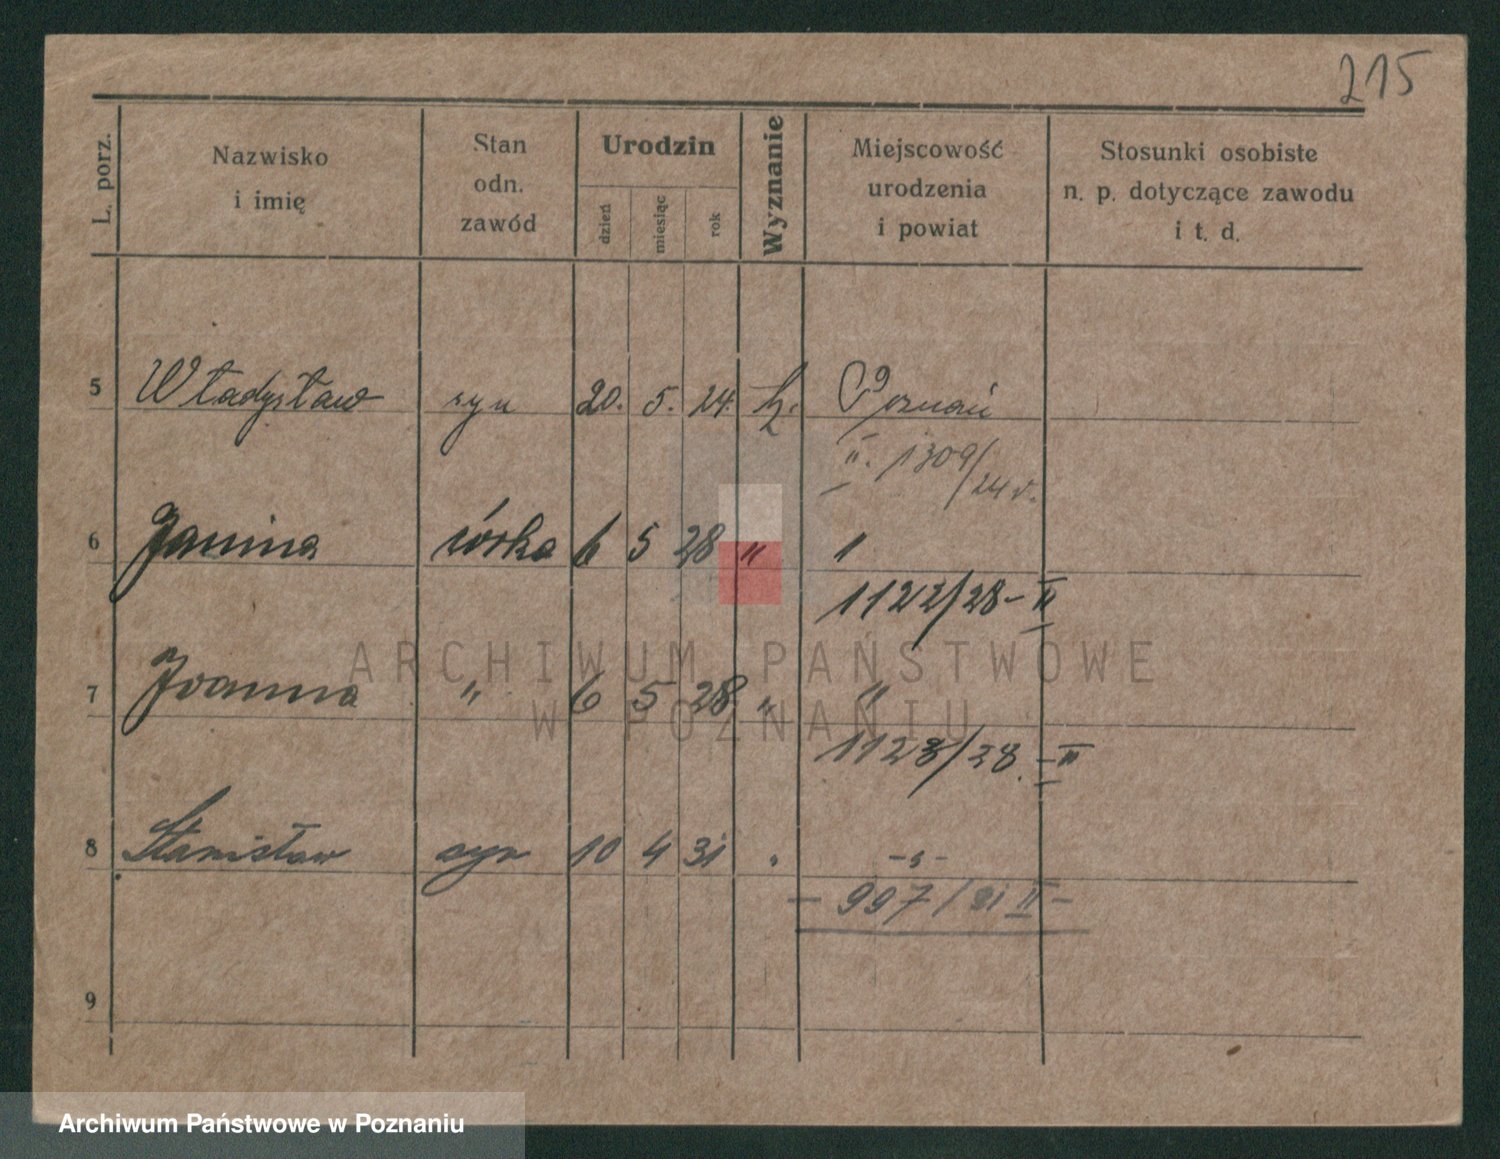 215
L. porz.
Nazwisko
i imię
Stan
odn.
zawód
Urodzin
dzień
miesiąc
rok
Wyznanie
Miejscowość
urodzenia
i powiat
Stosunki osobiste
n. p. dotyczące zawodu
i t. d.
5 Władysław syn 20. 5. 24. Poznań
II. 1309/24 r.
6 Janina córka 6 5 28 " 1
1122/28 - II
7 Joanna " 6 5 28 " "
1123/28. - II
8 Stanisław syn 10 4 31 " -"-
- 997/31 II -
9
ARCHIWUM PAŃSTWOWE
W POZNANIU
Archiwum Państwowe w Poznaniu